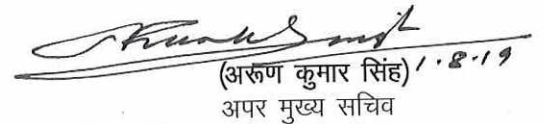 (अरूण कुमार सिंह) 1.8.19
अपर मुख्य सचिव